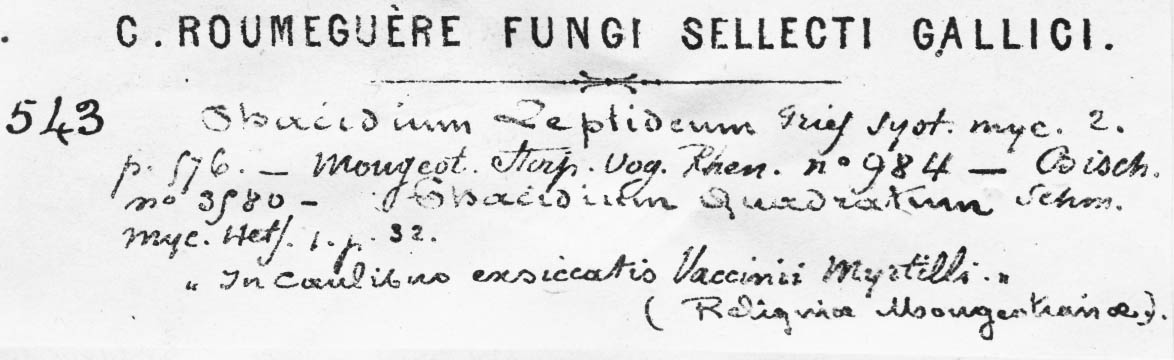 C. ROUMEGUÈRE FUNGI SELLECTI GALLICI.
543 Phacidium Leptideum Fries syst. myc. 2.
p. 576. — Mougeot. Stirp. Vog. Rhen. nº 984 — Bisch.
nº 3580 – Phacidium Quadratum Schm.
myc. Heft. 1. p. 32.
„ In Caulibus exsiccatis Vaccinii Myrtilli. „
( Reliquiæ Mougeotianæ ).